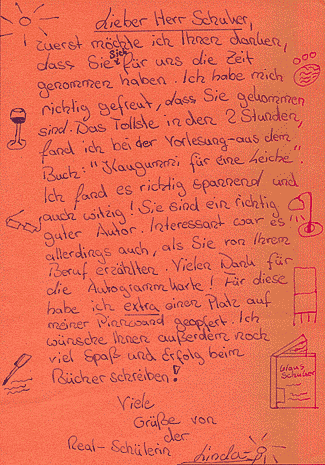 Lieber Herr Schuker,
zuerst möchte ich Ihnen danken,
dass Sie sich für uns die Zeit
genommen haben. Ich habe mich
richtig gefreut, dass Sie gekommen
sind. Das Tollste in den 2 Stunden,
fand ich bei der Vorlesung aus dem
Buch: "Kaugummi für eine Leiche".
Ich fand es richtig spannend und
auch witzig! Sie sind ein richtig
guter Autor. Interessant war es
allerdings auch, als Sie von Ihrem
Beruf erzählten. Vielen Dank für
die Autogrammkarte! Für diese
habe ich extra einen Platz auf
meiner Pinnwand geopfert. Ich
wünsche Ihnen außerdem noch
viel Spaß und Erfolg beim
Bücherschreiben!
Viele
Grüße von
der
Real-Schülerin Linda
Klaus
Schuker